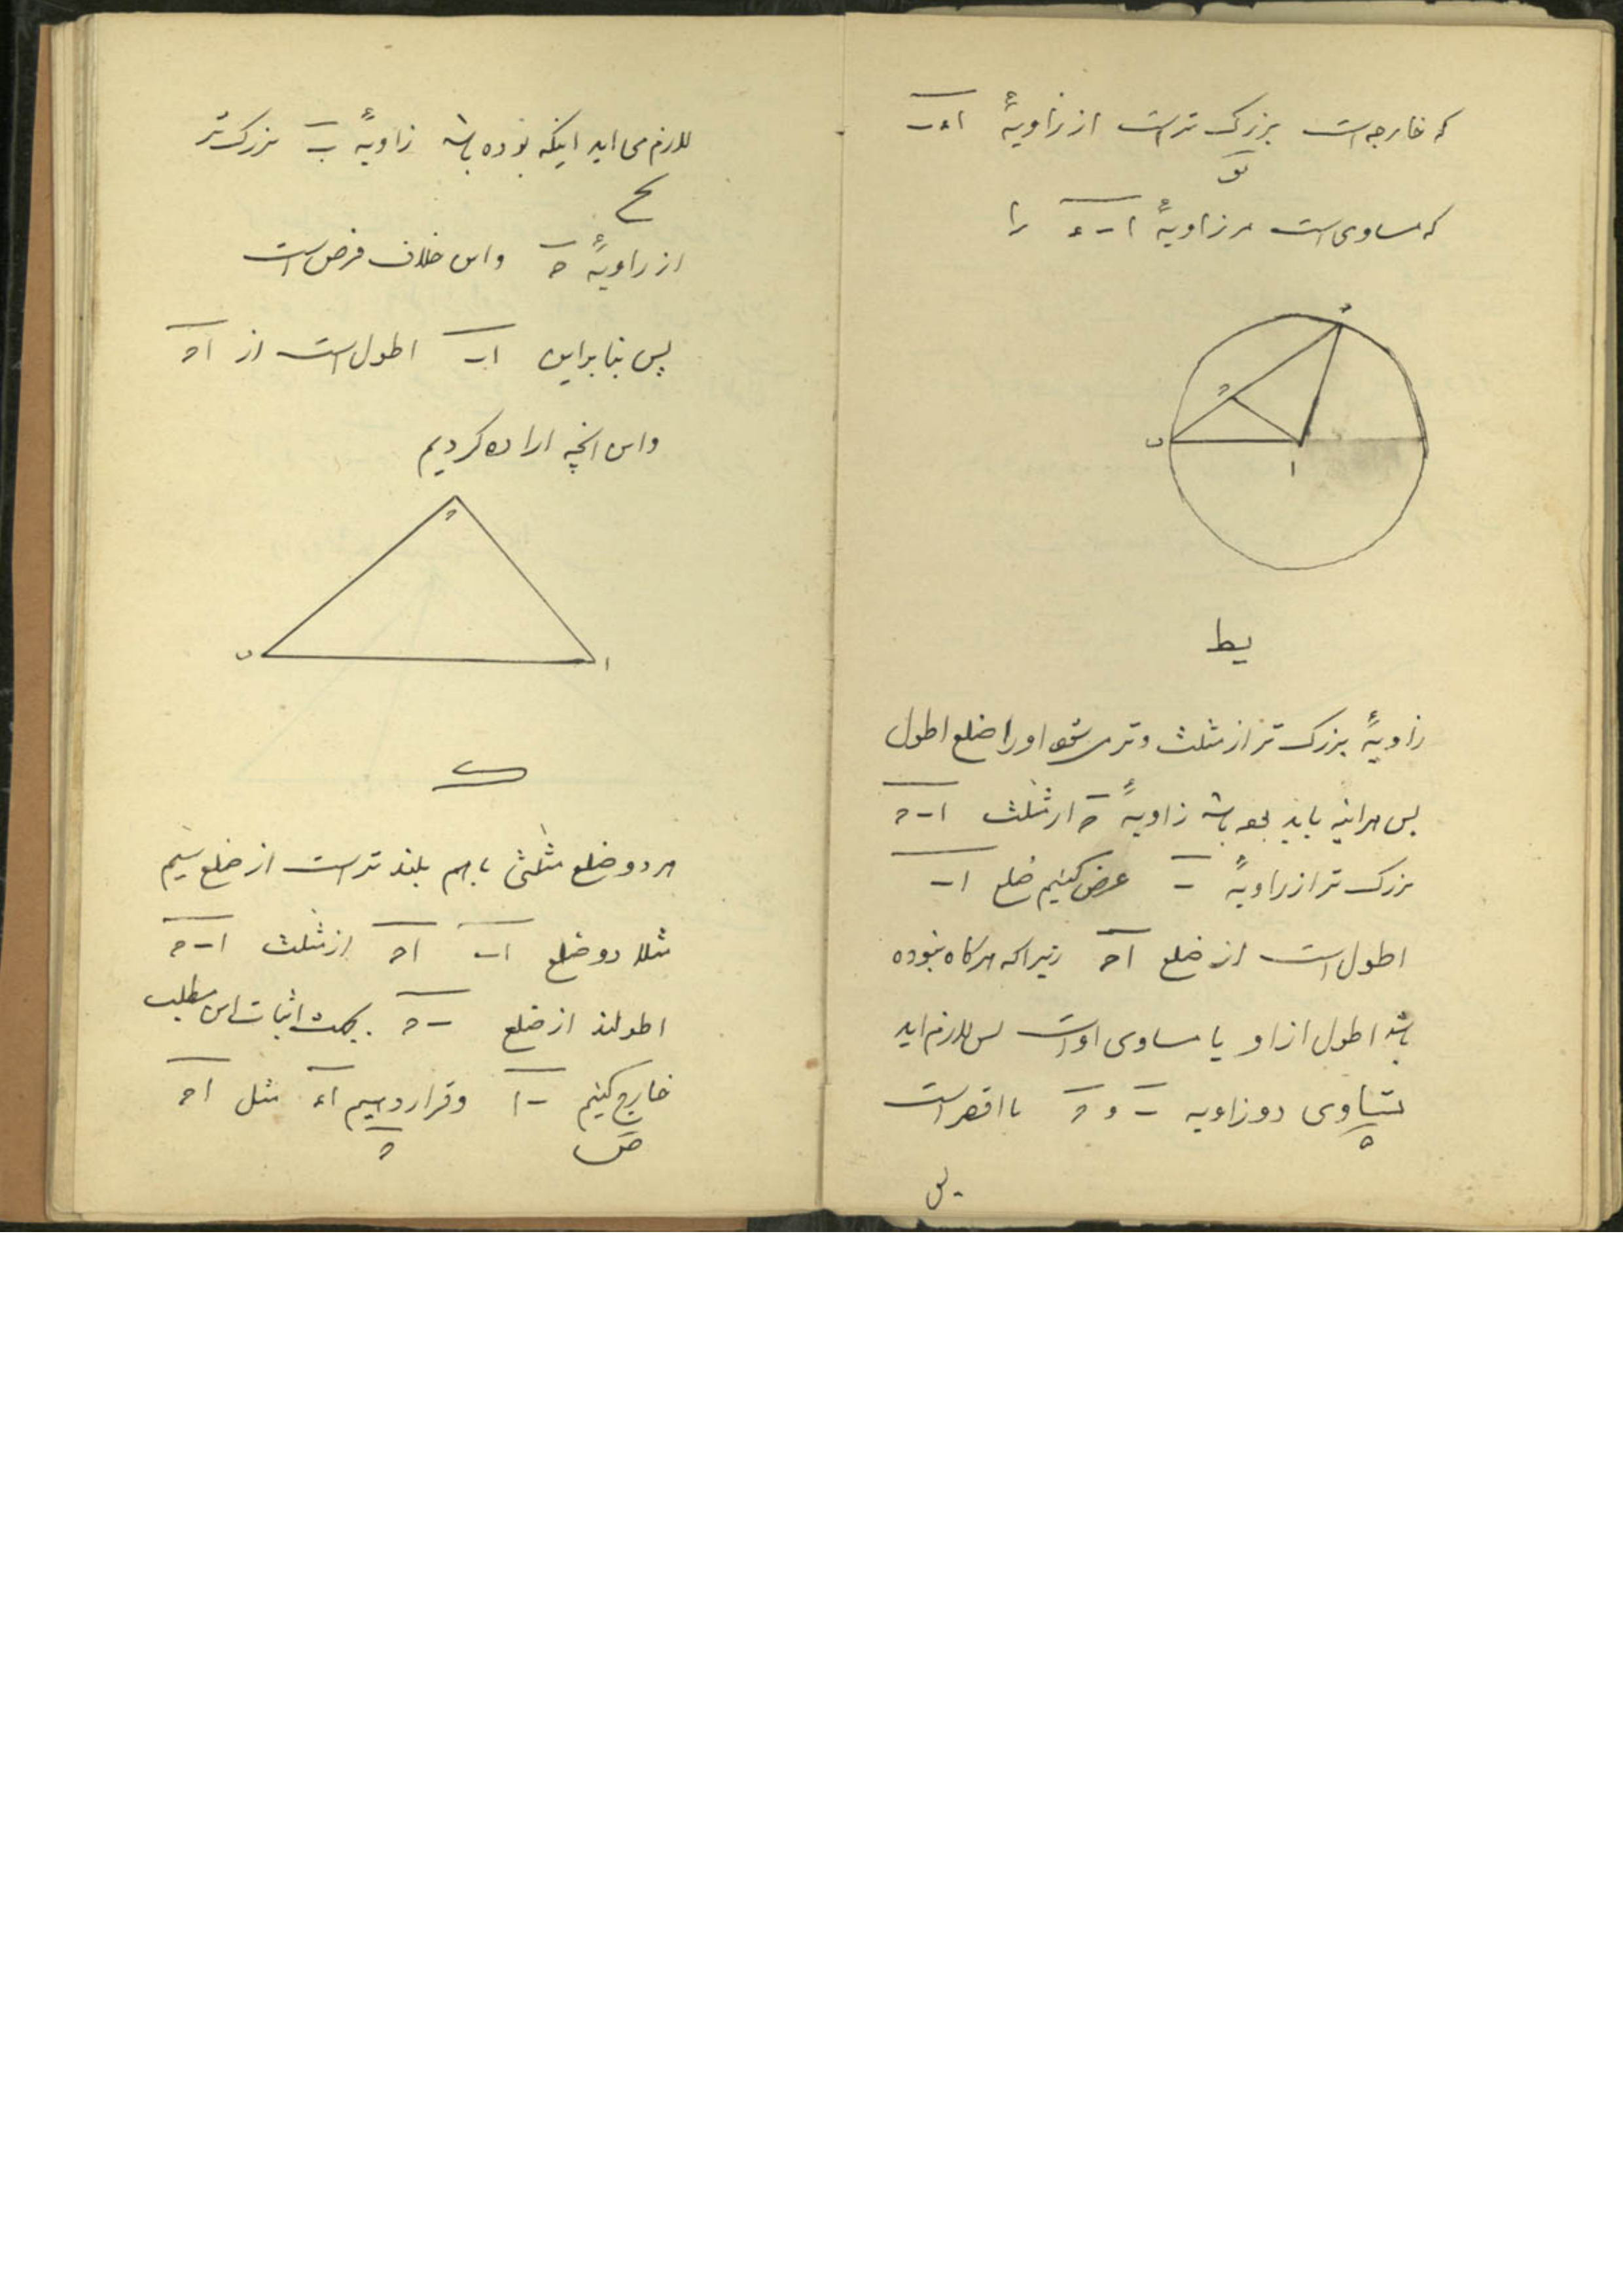 که خارجه است بزرک تر است از زاویهٔ اءب
یو
که مساوی است مر زاویهٔ ا ب ء را
ء
ح
ب
ا
یط
زاویهٔ بزرک تر از مثلث وتر میشود او را ضلع اطول
پس هراینه باید بوده باشد زاویهٔ ح از مثلث ا ب ح
بزرک تر از زاویهٔ ب عرض کنیم ضلع ا ب
اطول است از ضلع ا ح زیرا که هرکاه نبوده
باشد اطول از او یا مساوی اوست پس لازم اید
تساوی دو زاویه ب و ح یا اقصر است
ه
پس
لازم می اید اینکه بوده باشد زاویهٔ ب بزرک تر
یح
از زاویهٔ ح واین خلاف فرض است
پس بنابراین ا ب اطول است از ا ح
واین انچه اراده کردیم
ح
ب
ا
ک
هر دو ضلع مثلثی باهم بلند تر است از ضلع سیم
مثلا دو ضلع ا ب ا ح از مثلث ا ب ح
اطولند از ضلع ب ح بجهت اثبات این مطلب
خارج کنیم ب ا و قرار دهیم ا ء مثل ا ح